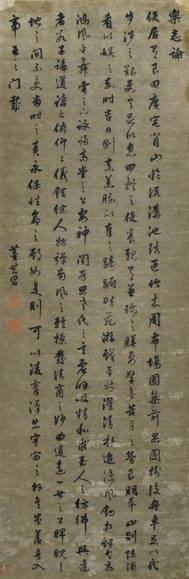 樂志論
使居有良田廣宅背山臨流溝池環匝竹木周布場圃築前果園樹後舟車足以代
步涉之艱使令足以息四體之役養親有兼珍之膳妻孥無苦身之勞良朋萃止則陳酒
肴以娛之嘉時吉日則烹羔豚以奉之躊躇畦苑游戲平林濯清水追涼風釣游鯉弋高
鴻風乎舞雩之下詠歸高堂之上安神閨房思老氏之玄虛呼吸精和求至人之彷彿與達
者數子論道講書俯仰二儀錯綜人物彈南風之雅操發清商之妙曲逍遙一世之上睥睨天
地之間不受當時之責永保性命之期如是則可以凌霄漢出宇宙之外矣豈羨夫入
帝王之門哉
董其昌